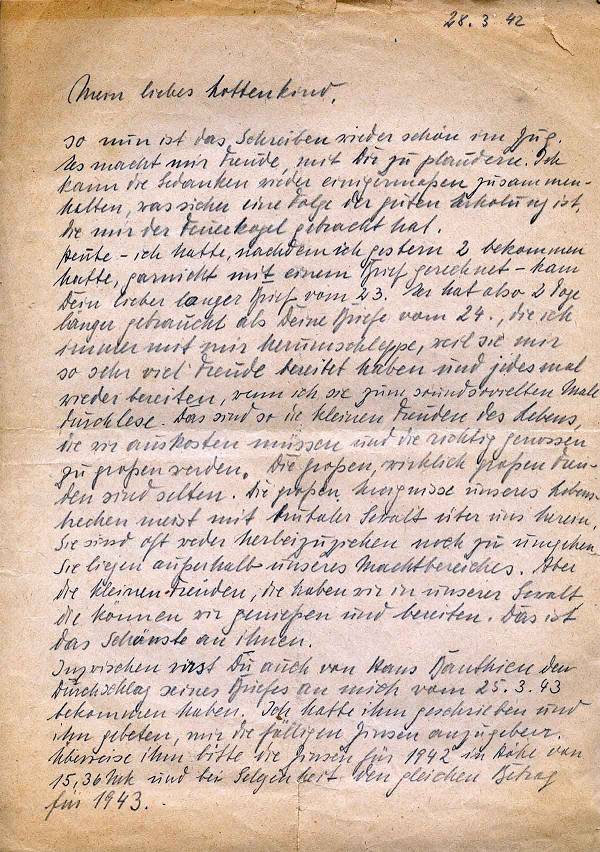 28.3 42
Mein liebes Lottenkind,
so nun ist das Schreiben wieder schön im Zug.
Es macht mir Freude, mit Dir zu plaudern. Ich
kann die Gedanken wieder einigermaßen zusammen-
halten, was sicher eine Folge der guten Erholung ist,
die mir der Feuerkogel gebracht hat.
Heute – ich hatte, nachdem ich gestern 2 bekommen
hatte, garnicht mit einem Brief gerechnet – kam
Dein lieber langer Brief vom 23. Er hat also 2 Tage
länger gebraucht als Deine Briefe vom 24., die ich
immer mit mir herumschleppe, weil sie mir
so sehr viel Freude bereitet haben und jedesmal
wieder bereiten, wenn ich sie zum soundsovielten Male
durchlese. Das sind so die kleinen Freuden des Lebens,
die wir auskosten müssen und die richtig genossen
zu großen werden. Die großen, wirklich großen Freu-
den sind selten. Die großen Ereignisse unseres Lebens
brechen meist mit brutaler Gewalt über uns herein.
Sie sind oft weder herbeizuziehen noch zu umgehen
Sie liegen außerhalb unseres Machtbereiches. Aber
die kleinen Freuden, die haben wir in unserer Gewalt
die können wir genießen und bereiten. Das ist
das Schönste an ihnen.
Inzwischen wirst Du auch von Hans den
Durchschlag seines Briefes an mich vom 25.3.43
bekommen haben. Ich hatte ihm geschrieben und
ihn gebeten, mir die fälligen Zinsen anzugeben.
Überweise ihm bitte die Zinsen für 1942 in Höhe von
15,36 Mk und bei Gelegenheit den gleichen Betrag
für 1943.